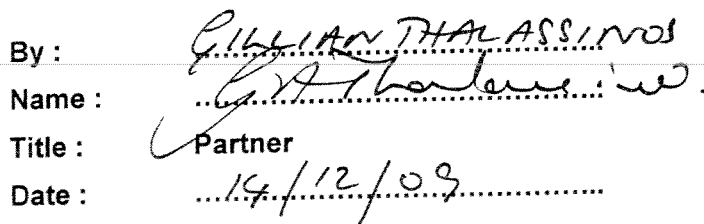 By : GILLIAN THALASSINOS
Name : G A Thalassinos.
Title : Partner
Date : 14/12/09